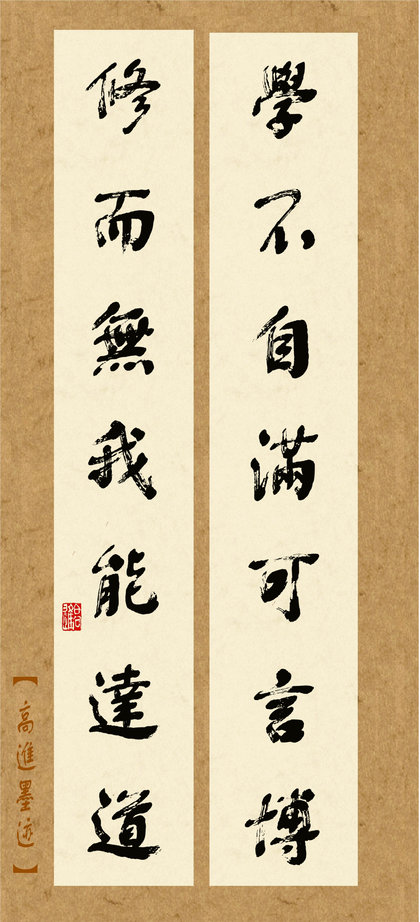 學不自滿可言博
修而無我能達道
【高進墨迹】